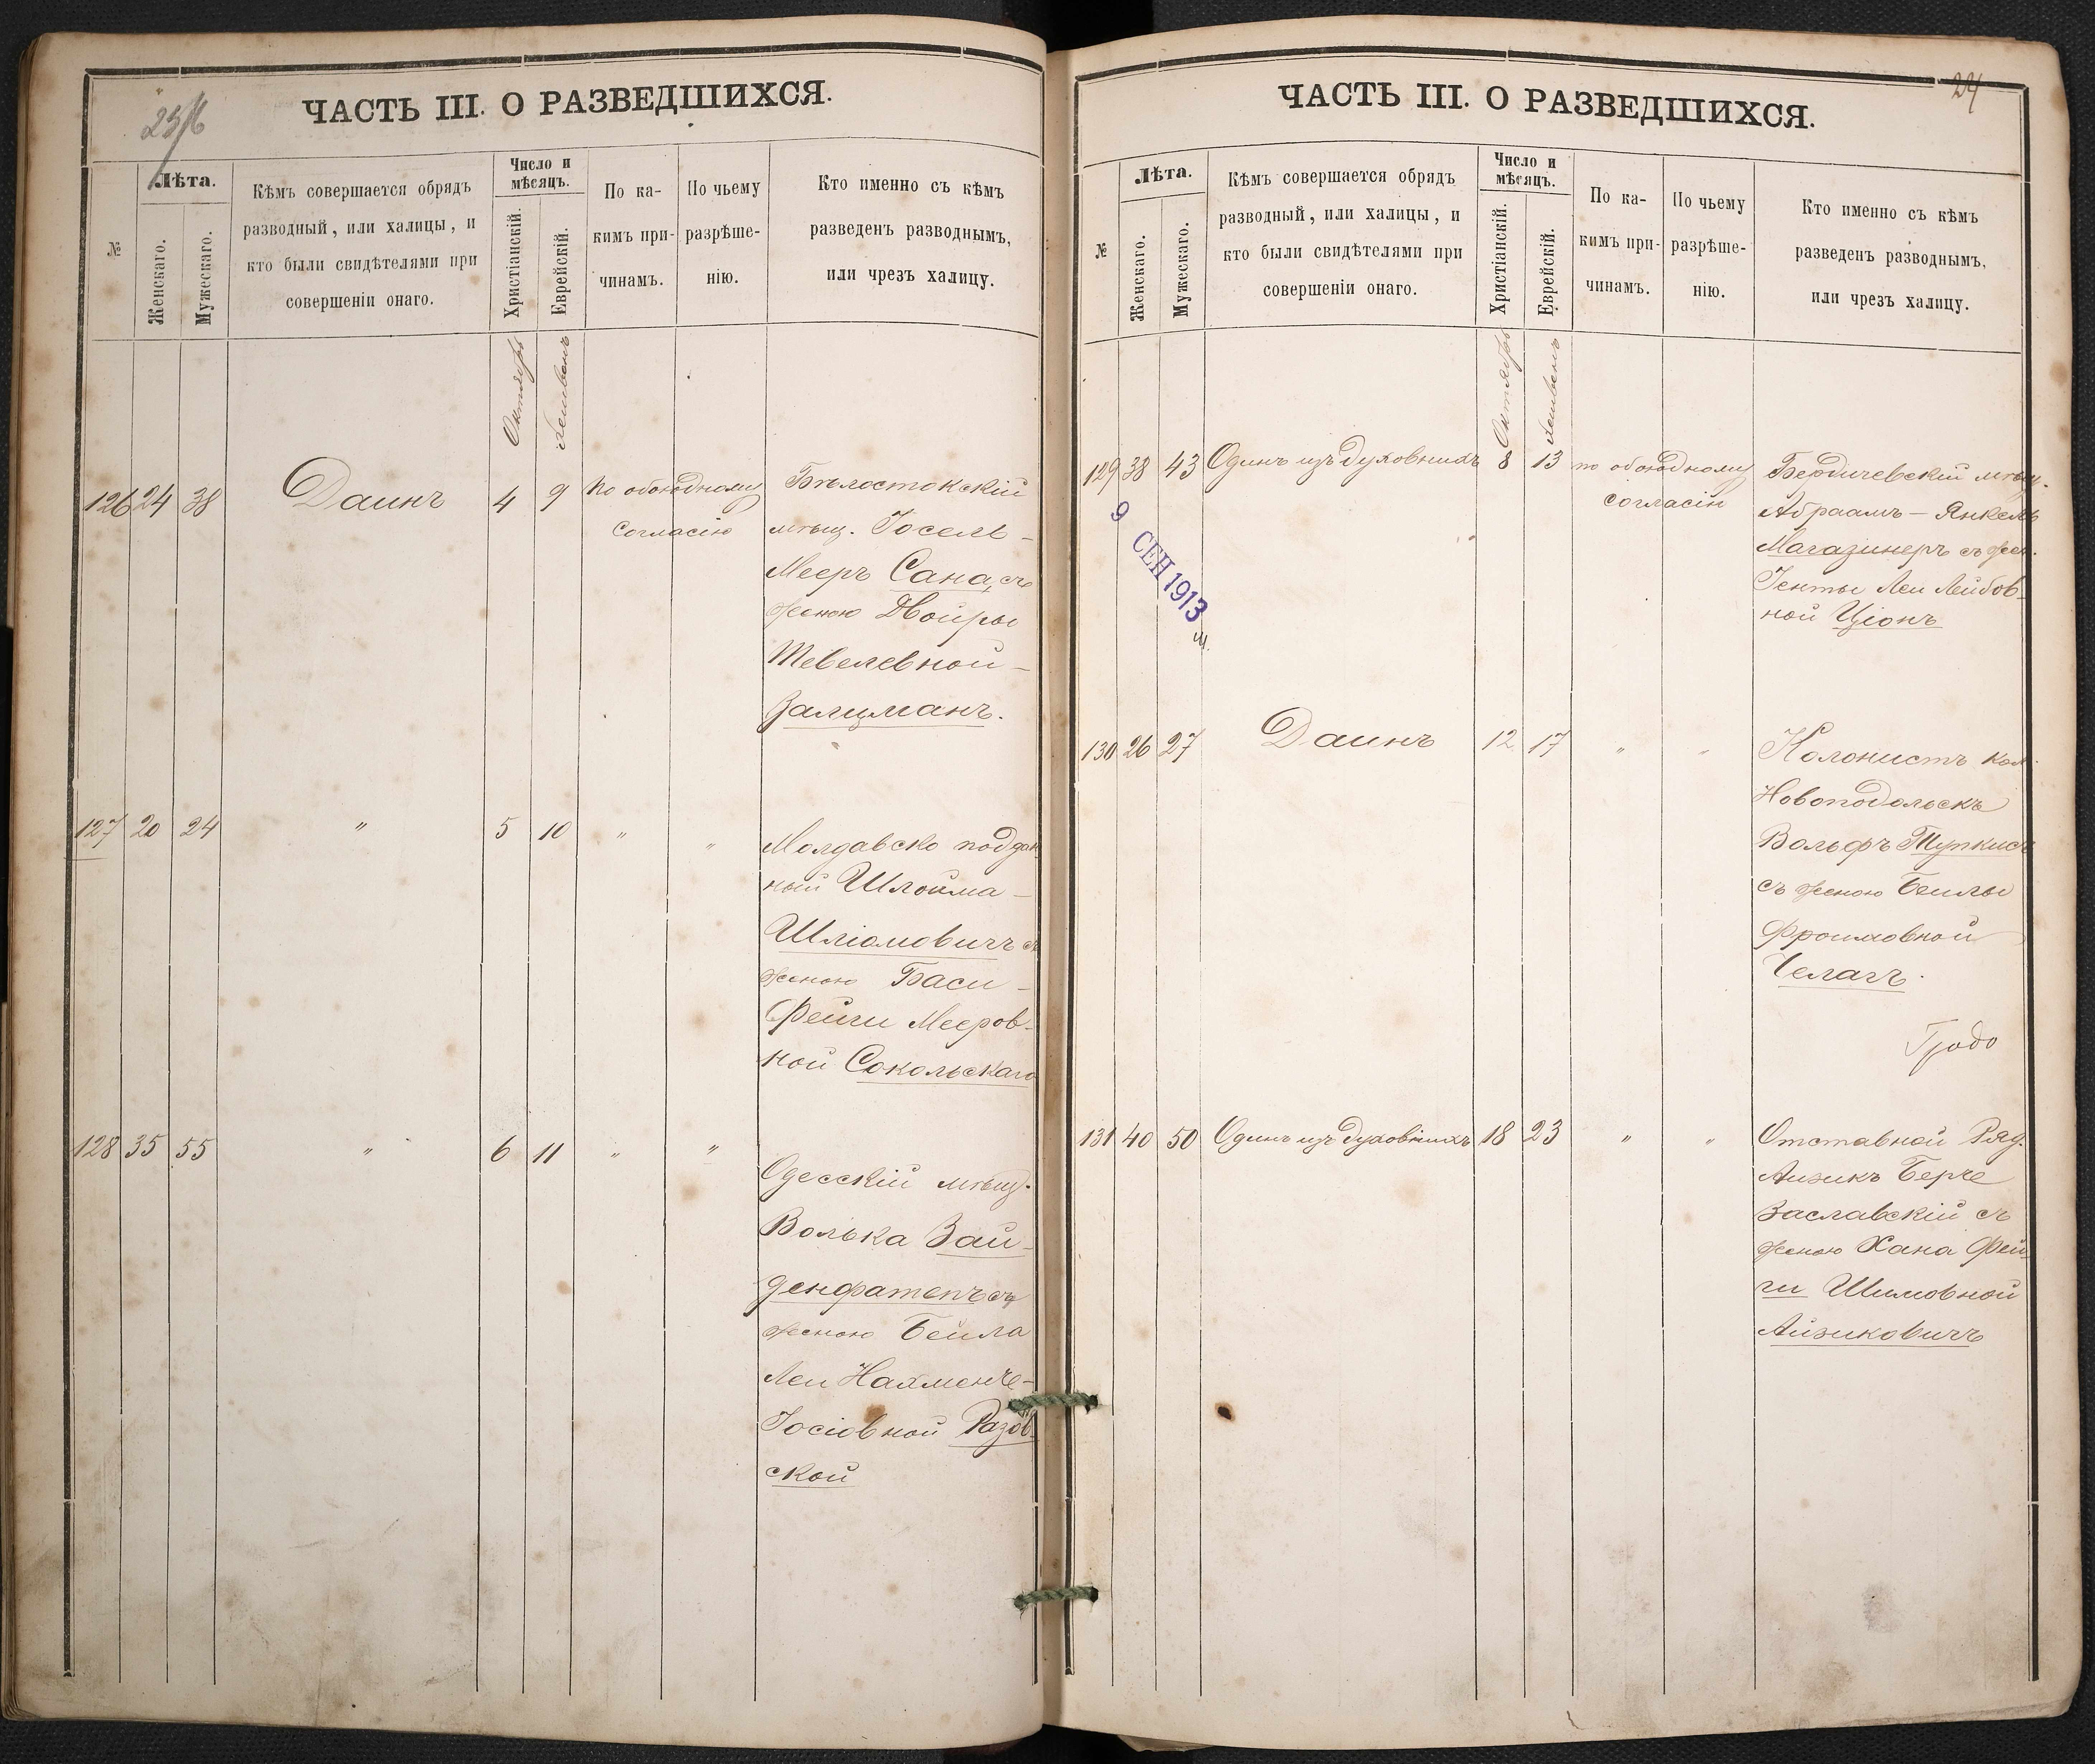 ЧАСТЬ III. О РАЗВЕДШИХСЯ.
№
Лѣта.
Женскаго.
Мужескаго.
Кѣмъ совершается обрядъ
разводный, или халицы, и
кто были свидѣтелями при
совершеніи онаго.
Число и
мѣсяцъ.
Христіанскій.
Еврейскій.
По ка-
кимъ при-
чинамъ.
По чьему
разрѣше-
нію.
Кто именно съ кѣмъ
разведенъ разводнымъ,
или чрезъ халицу.
Октябрь
Хешвань
126 24 38 Даинъ 4 9 По обоюдному
согласію
Бѣлостокскій
мѣщ. Іосель-
Мееръ Сана, съ
женою Двойры
Тевелевной-
Залцманъ.
127 20 24 " 5 10 " "
Молдавско поддан
ный Шлойма-
Шліомовичъ съ
женою Баси-
Фейги Мееров-
ной Сокольскаго
128 35 55 " 6 11 " "
Одесскій мѣщ.
Волька Зай-
денфатепъ съ
женою Бейла
Леи Нахменче-
Іосіовной Разов-
ской
ЧАСТЬ III. О РАЗВЕДШИХСЯ.
24
№
Лѣта.
Женскаго.
Мужескаго.
Кѣмъ совершается обрядъ
разводный, или халицы, и
кто были свидѣтелями при
совершеніи онаго.
Число и
мѣсяцъ.
Христіанскій.
Еврейскій.
По ка-
кимъ при-
чинамъ.
По чьему
разрѣше-
нію.
Кто именно съ кѣмъ
разведенъ разводнымъ,
или чрезъ халицу.
Октябрь
Хешвань
129 38 43 Одинъ изъ духовныхъ 8 13 по обоюдному
согласію
Бердичевскій мѣщ.
Абраамъ-Янкель
Магазинеръ съ жен.
Генты Леи Лейбов-
ной Ціонъ
9 СЕН 1913
130 26 27 Даинъ 12 17 " "
Колонистъ кол.
Новоподольскъ
Вольфъ Тупкисъ
съ женою Бейлы
Фроимовной
Челагъ.
131 40 50 Одинъ изъ духовныхъ 18 23 " "
Отставной Ряд.
Аизикъ Берче
Заславскій съ
женою Хана Фей-
ги Шимовной
Айзиковичъ